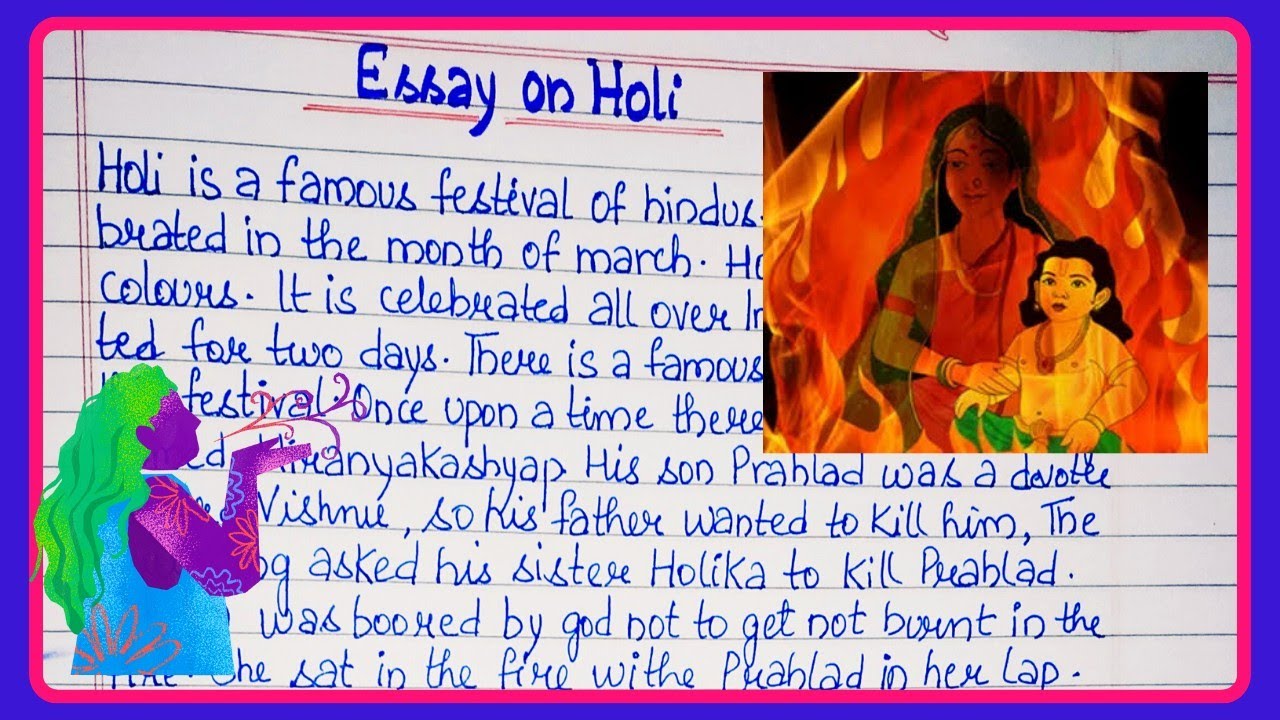 Essay on Holi
Holi is a famous festival of hindus.
brated in the month of march. Ho
colours. It is celebrated all over In
ted for two days. There is a famous
festival. Once upon a time there
Hiranyakashyap His son Prahlad was a devotte
Vishnu, so his father wanted to kill him, The
asked his sister Holika to kill Prahlad.
was boored by god not to get not burnt in the
She sat in the fire withe Prahlad in her lap.